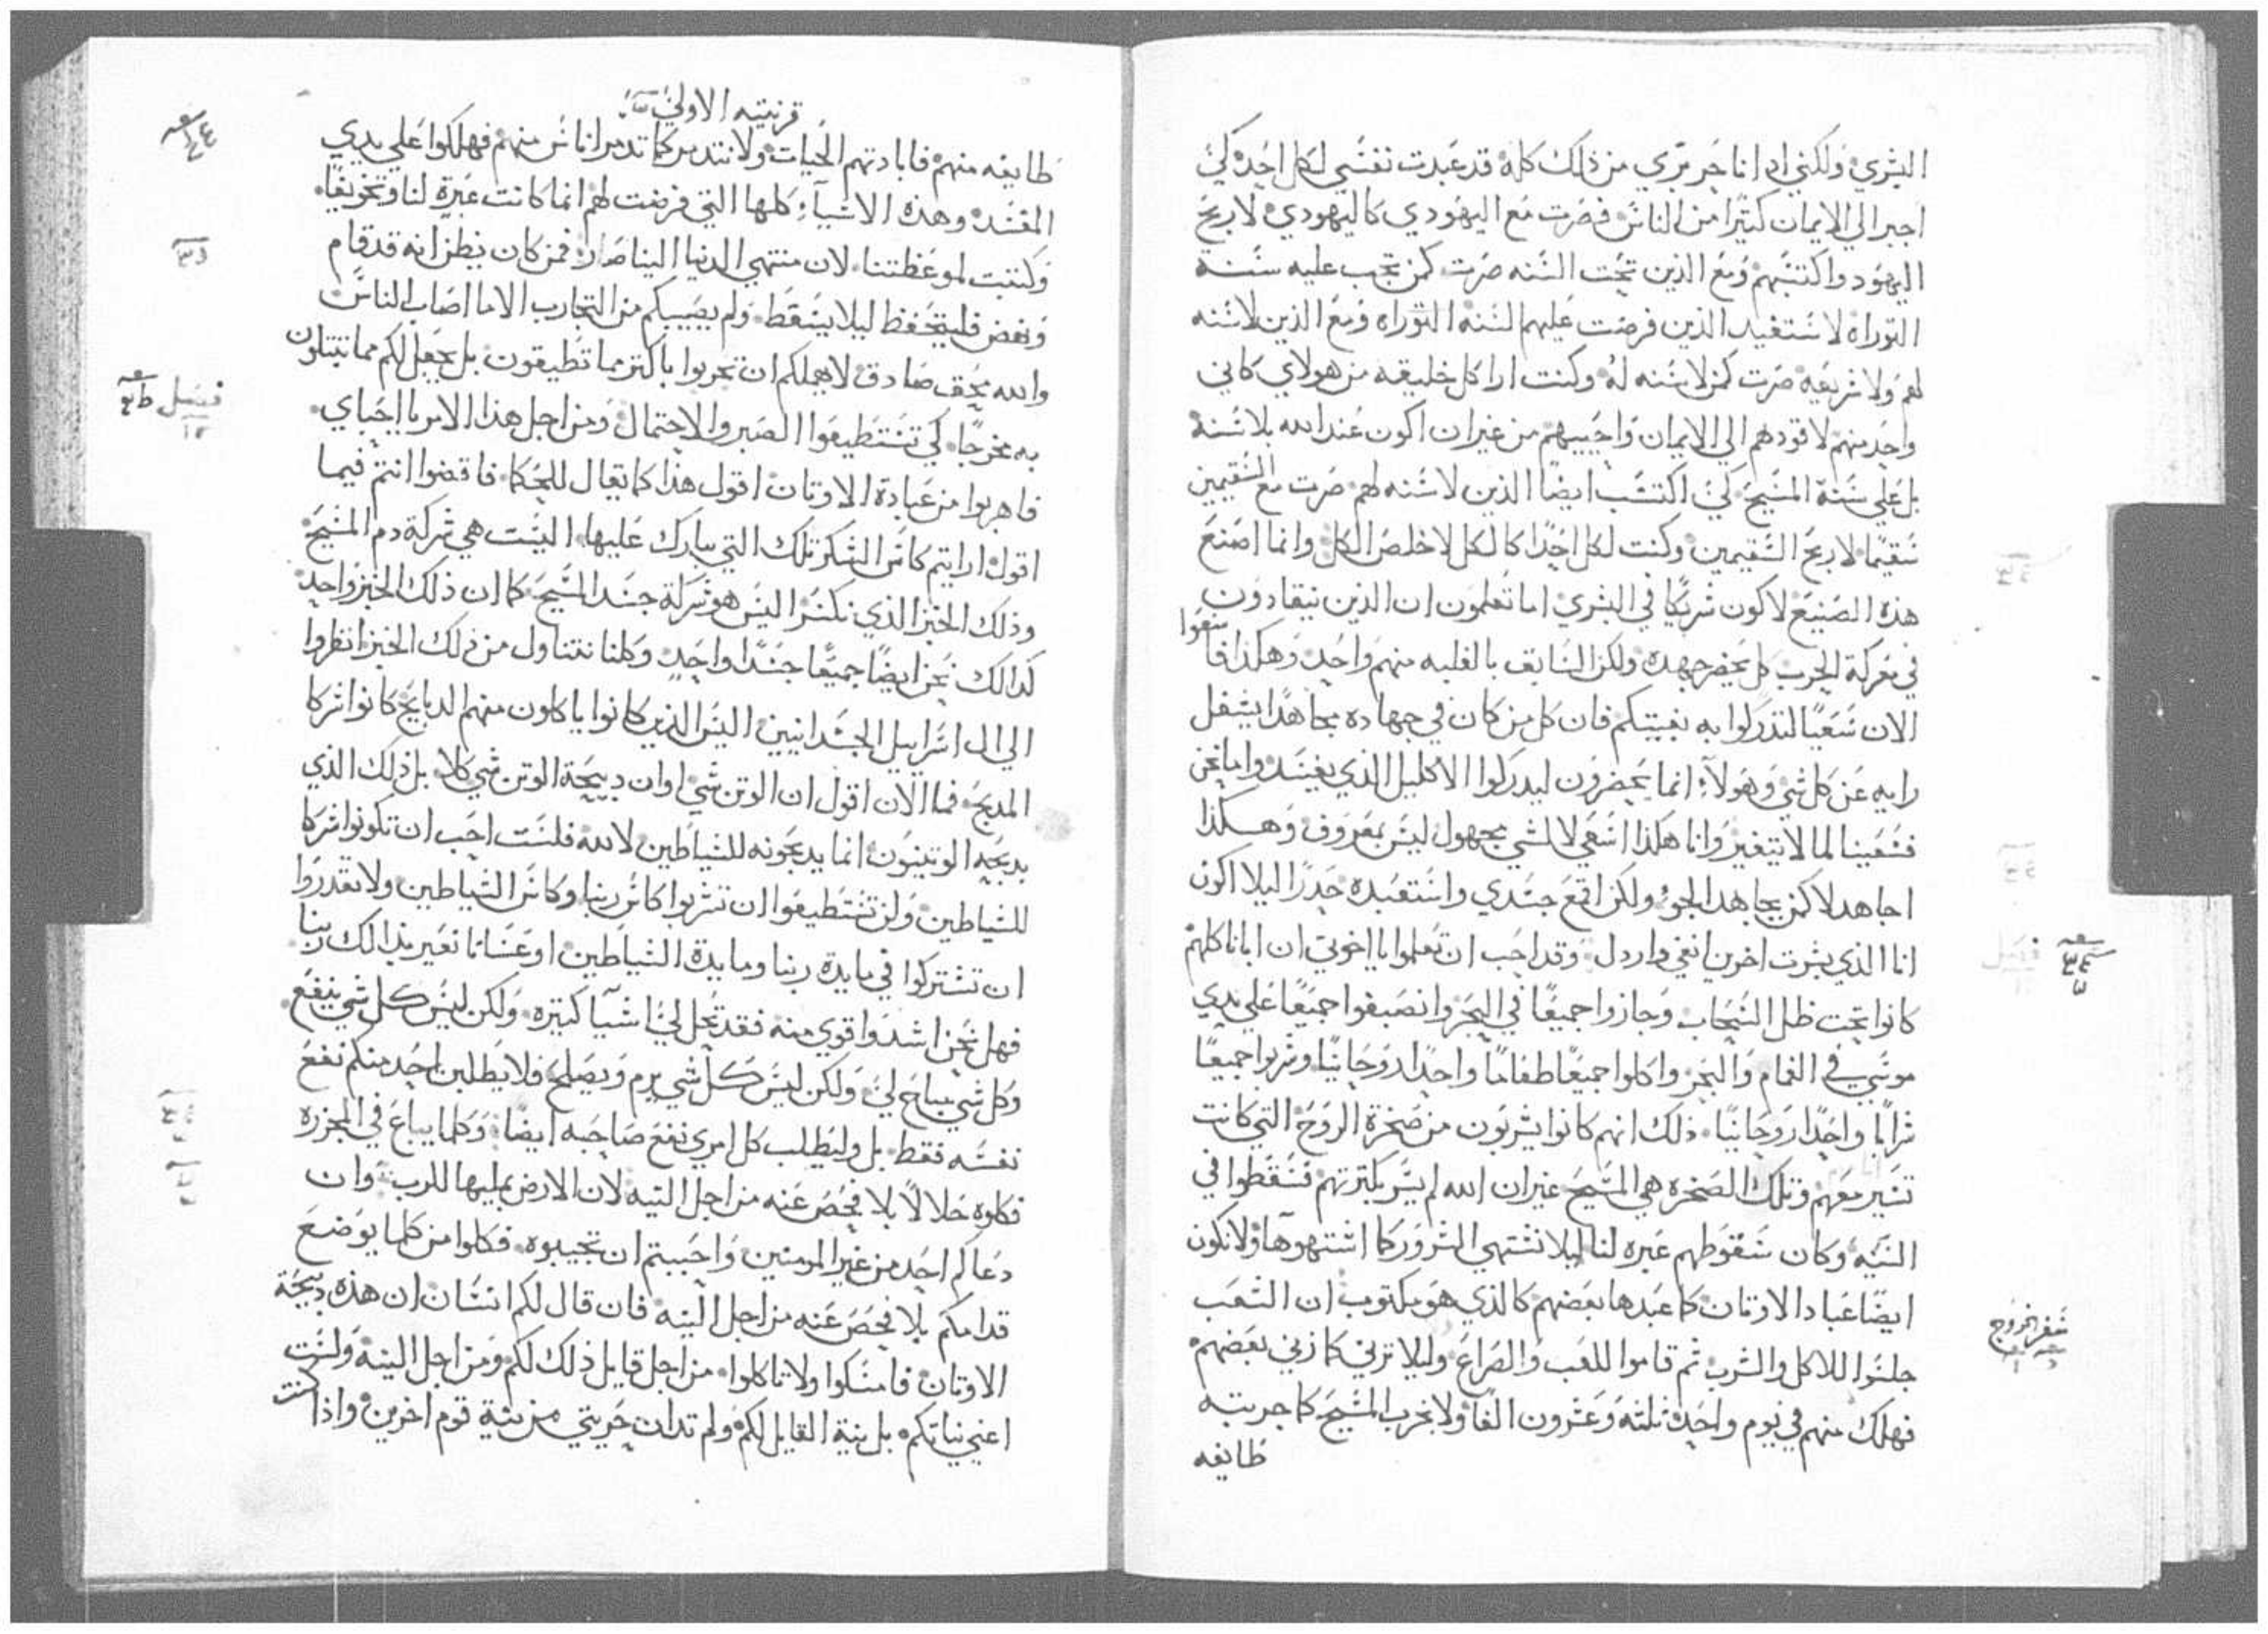 البشري ولكني اد انا حر بري من ذلك كله قد عبدت نفسي لكل احد كي
اجبر الي الايمان كثيرا من الناس فصرت مع اليهودي كاليهودي لاربح
اليهود واكتسبهم ومع الذين تحت السنه صرت كمن تجب عليه سنة
التوراة لاستفيد الذين فرضت عليهم السنه التوراه ومع الذين لاسنه
لهم ولا شريعه صرت كمن لاسنه له وكنت ارا كل خليقه من هولاي كاني
واحد منهم لاقودهم الي الايمان واحييهم من غير ان اكون عند الله بلا سنة
بل علي سنة المسيح كي اكتسب ايضا الذين لاسنه لهم صرت مع السقيمين
سقيما لاربح السقيمين وكنت لكل احدا كالكل لاخلص الكل وانما اصنع
هذه الصنيع لاكون شريكا في البشري اما تعلمون ان الذين يتقادون
في معركة الحرب كل يحضر جهده ولكن السابق بالغلبه منهم واحد وهكذا فاسعوا
الان سعيا لتدركوا به بغيتكم فان كل من كان في جهاده مجاهدا يشغل
رايه عن كل شي وهولآء انما يحضرون ليدركوا الاكليل الذي يفسد واما نحن
فسعينا لما لا يتغير وانا هكذا اسعي لا لشي مجهول ليس بمعروف وهكذا
اجاهد لا كمن يجاهد الجو ولكن اقمع جسدي واستعبده حدرا ليلا اكون
انا الذي بشرت اخرين انفي واردل وقد احب ان تعلموا يا اخوتي ان ابانا كلهم
كانوا تحت ظل السحاب وجازوا جميعا في البحر وانصبغوا جميعا علي يدي
موسي في الغمام والبحر واكلوا جميعا طعاما واحدا روحانيا وشربوا جميعا
شرابا واحدا روحانيا ذلك انهم كانوا يشربون من صخرة الروح التي كانت
تسير معهم وتلك الصخره هي المسيح غير ان الله لم يسر بكثرتهم فسقطوا في
التيه وكان سقوطهم عبره لنا ليلا نشتهي الشرور كما اشتهوها ولا نكون
ايضا عباد الاوتان كما عبدها بعضهم كالذي هو مكتوب ان الشعب
جلسوا للاكل والشرب ثم قاموا للعب والصراع وليلا نزني كما زني بعضهم
فهلك منهم في يوم واحد ثلثة وعشرون الفا ولا نجرب المسيح كما جربته
طايفه
فصل
سفر الخروج
قرنتيه الاولي
طايفه منهم فابادتهم الحيات ولا نتدمر كما تدمر اناس منهم فهلكوا علي يدي
المفسد وهذه الاشيآء كلها التي فرضت لهم انما كانت عبرة لنا وتخويفا
وكتبت لموعظتنا لان منتهي الدنيا الينا صار فمن كان يظن انه قد قام
ونهض فليتحفظ ليلا يسقط ولم يصيبكم من التجارب الا ما اصاب الناس
والله محق صادق لا يهملكم ان تجربوا باكتر مما تطيقون بل يجعل لكم مما تبتلون
به مخرجا كي تستطيعوا الصبر والاحتمال ومن اجل هذا الامر يا احباي
فاهربوا من عبادة الاوتان اقول هذا كما يقال للحكما فاقضوا انتم فيما
اقول ارايتم كاس الشكر تلك التي يبارك عليها اليست هي شركة دم المسيح
وذلك الخبز الذي نكسر اليس هو شركة جسد المسيح كما ان ذلك الخبز واحد
كذالك نحن ايضا جميعا جسدا واحد وكلنا نتناول من ذلك الخبز انظروا
الي ال اسراييل الجسدانيين اليس الذين كانوا ياكلون منهم الدبايح كانوا شركا
المدبح فما الان اقول ان الوتن شي او ان دبيحة الوتن شي كلا بل ذلك الذي
يدبحه الوتنيون انما يدبحونه للشياطين لا لله فلست احب ان تكونوا شركا
للشياطين ولن تستطيعوا ان تشربوا كاس ربنا وكاس الشياطين ولا تقدروا
ان تشتركوا في مايدة ربنا ومايدة الشياطين او عسانا نغير بدالك ربنا
فهل نحن اشد واقوي منه فقد تحل لي اشيا كتيره ولكن ليس كل شي ينفع
وكل شي مباح لي ولكن ليس كل شي يرم ويصلح فلا يطلبن احد منكم نفع
نفسه فقط بل وليطلب كل امري نفع صاحبه ايضا وكلما يباع في المجزره
فكلوه حلالا بلا فحص عنه من اجل النيه لان الارض بمليها للرب وان
دعاكم احد من غير المومنين واحببتم ان تجيبوه فكلوا من كلما يوضع
قدامكم بلا فحص عنه من اجل النيه فان قال لكم انسان ان هذه دبيحة
الاوتان فامسكوا ولا تاكلوا من اجل قايل ذلك لكم ومن اجل النية ولست
اعني نياتكم بل بنية القايل لكم ولم تدان حريتي من نية قوم اخرين واذا كنت
فصل